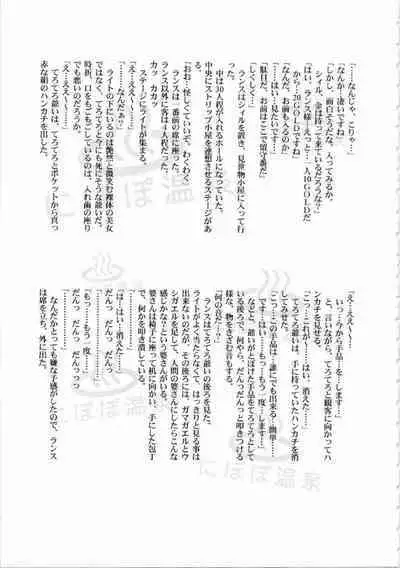 「……なんじゃ、こりゃ…」
「なんか…凄いですね」
「しかし、面白そうだな、入ってみるか。
シィル、金は持って来ているだろうな？」
「はい、ランス様！えっと…一人10GOLDだ
から…20GOLDですね」
「なんだ、お前も入るのか」
「は…はい…見たいです…」
「駄目だ、お前はここで留守番だ」
「しくしく…」
ランスはシィルを置き、見世物小屋に入って行
った。
中は30人程が入れるホールになっていた。
中央にストリップ小屋を連想させるステージがあ
る。
「おお…怪しくていいぞ、わくわく」
ランスは一番前の席に座った。
ランス以外に客は4人程だった。
カッ　カカッ
ステージにライトが集まる。
「………なんだぁ？」
「え…ええ～～…」
ライトの下にいるのは艶然と微笑む裸体の美女
ではなく、てろてろと今にも死にそうな爺いだ。
時折、口をもごもごしているのは、入れ歯の座り
でも悪いのだろうか。
「え…ええ～～…」
てろてろ爺いは、てろてろとポケットから真っ
赤な絹のハンカチを出した。
「え…ええ～～…」
「いっ…今から手品を…します…」
と、言いながら、てろてろと観客に向かってハ
ンカチを見せる。
てろてろ爺いは、手に持っていたハンカチを消
「こっ…これが………はい、消えた…」
「こっ…この手品は…誰にでも出来る…簡単…
です……はい……もっ…もう一度…します…」
などと、爺いがとぼけた手品をてろてろとして
いる後ろで、何やら、だんっだんっと叩きつける
様な、物をきざむ音もする。
「何の音だ…？」
ランスはてろてろ爺いの後ろを見た。
ライトがよくあたらなくて、はっきりと見る事は
出来ないのだが、その後ろには、ガマガエルとウ
シガエルを足して、人間の婆さんにしたらこんな
感じかな？という婆さんがいる。
婆さんは椅子に座って机に向かい、手にした包丁
で、何かを叩き潰している。
「は……はい…消えた…」
だんっ　だんっ　だんっ
「もっ……もう一度…」
だんっ　だんっ　だんっ
「…………」
なんだかとっても嫌な予感がしたので、ランス
は席を立ち、外に出た。
にほぼ温泉
にほぼ温泉